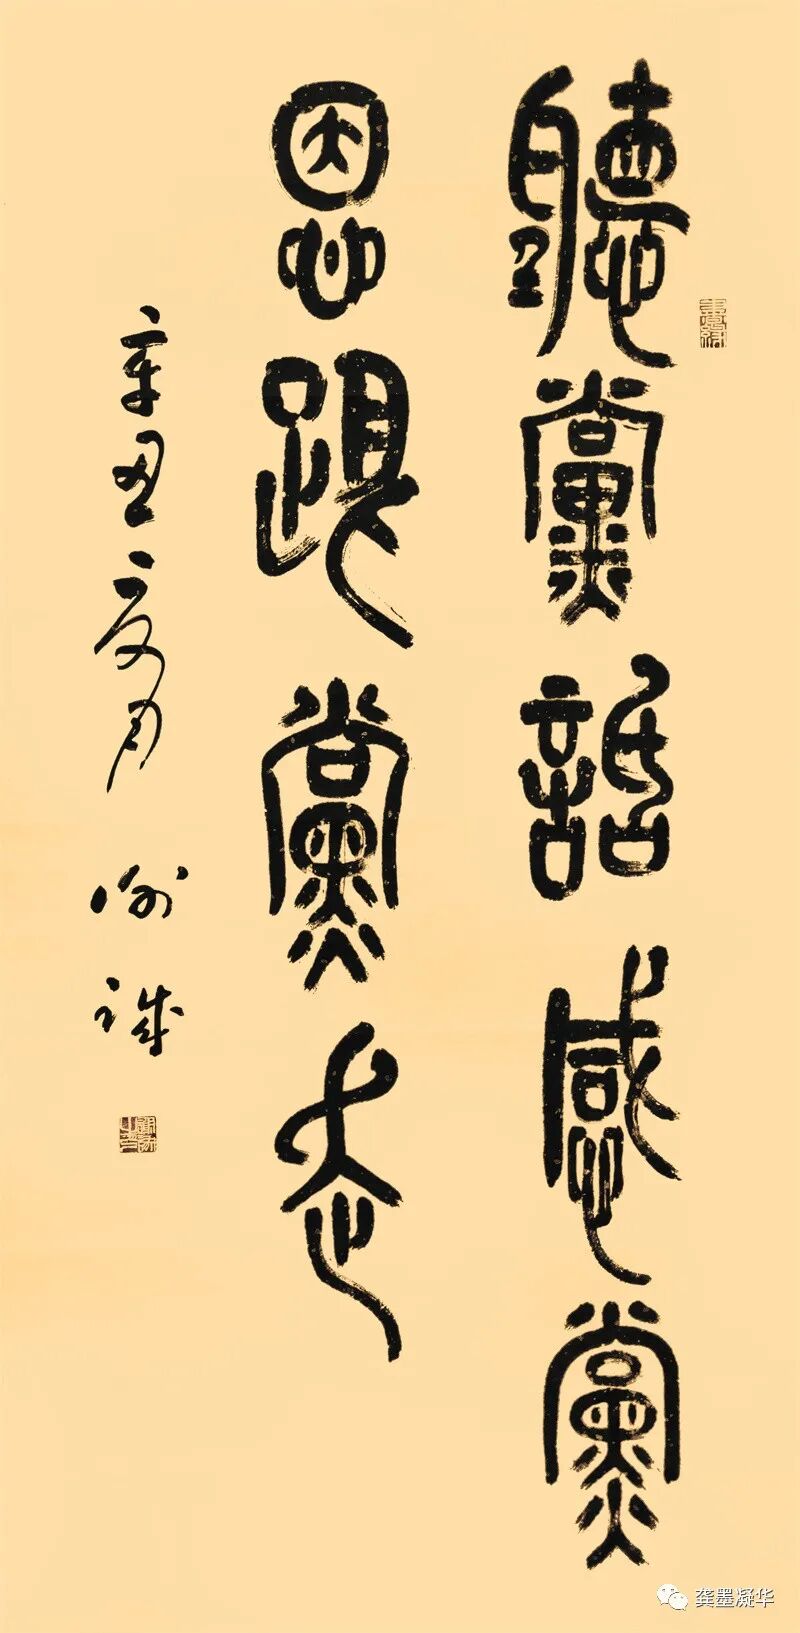 聽黨話感黨
恩跟黨走
辛丑之夏月
龚墨凝华